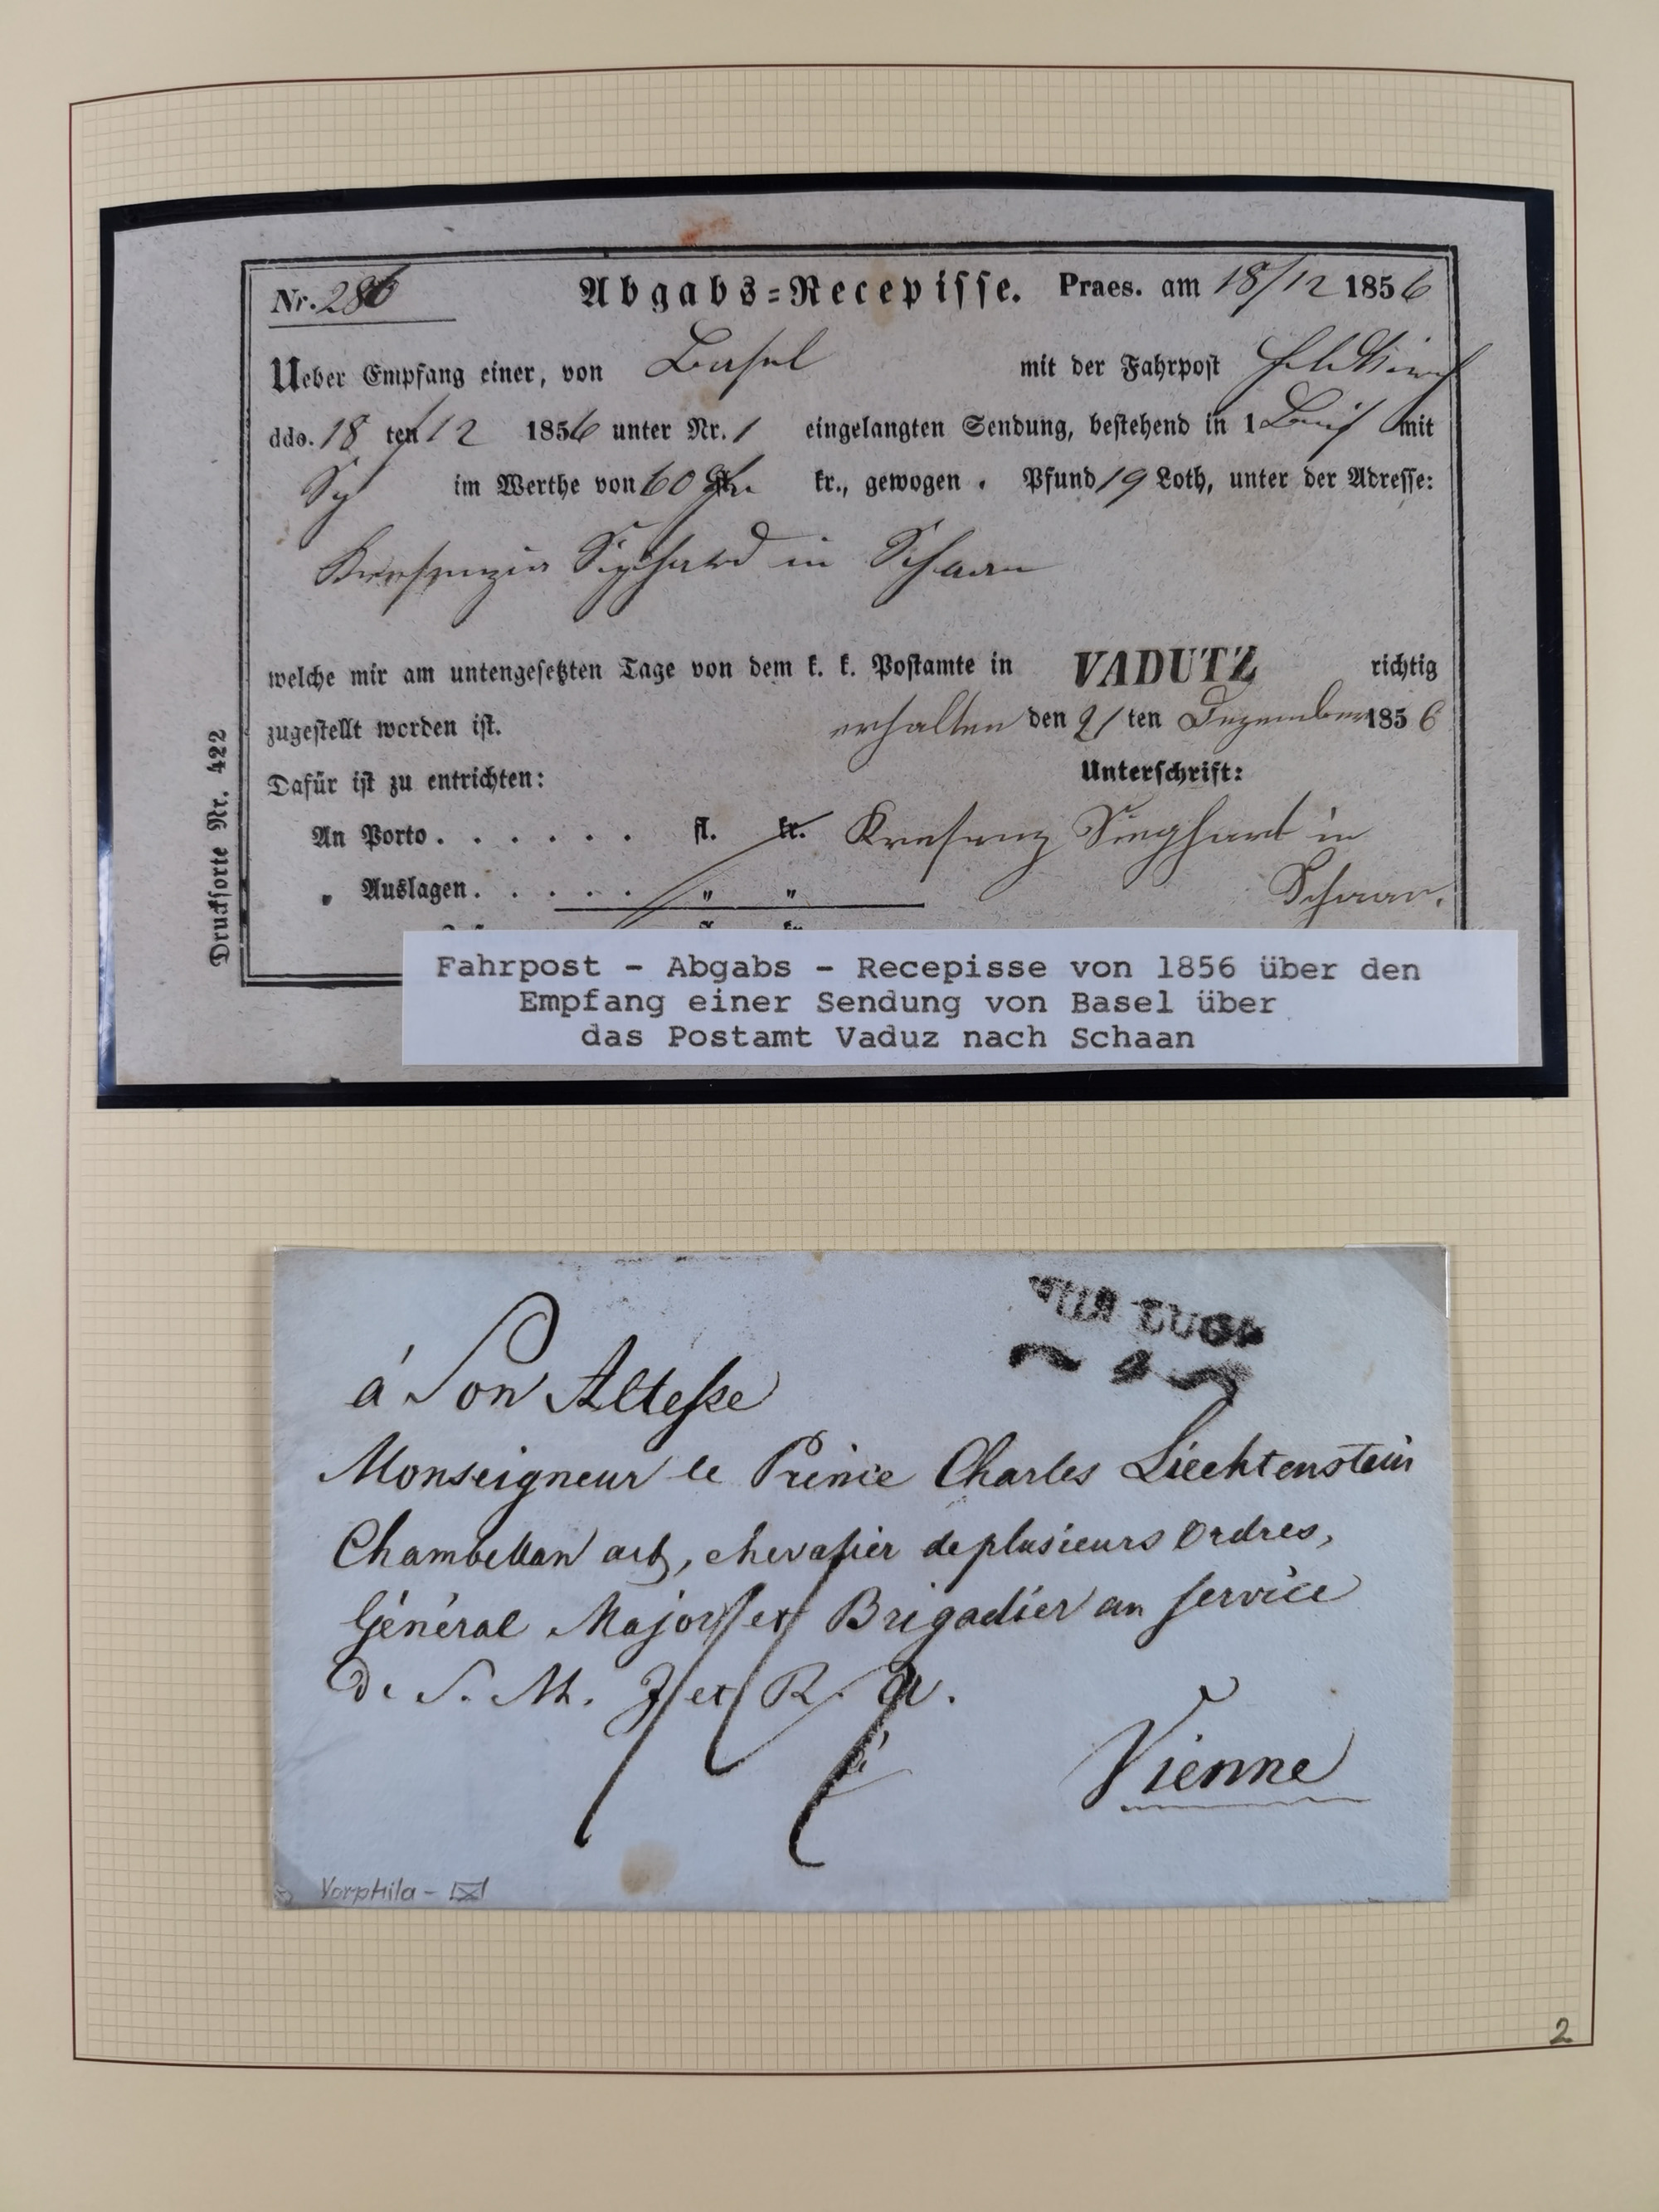 Nr. 286 Abgabs=Recepisse. Praes. am 18/12 1856
Ueber Empfang einer, von Basel mit der Fahrpost Feldkirch
ddo. 18 ten 12 1856 unter Nr. 1 eingelangten Sendung, bestehend in 1 Brief mit
im Werthe von 60 kr., gewogen . Pfund 19 Loth, unter der Adresse:
Kresenzia in Schaan
welche mir am untengesetzten Tage von dem k. k. Postamte in VADUTZ richtig
zugestellt worden ist. erhalten den 21 ten Dezember 1856
Dafür ist zu entrichten: Unterschrift:
An Porto . . . . . . fl. kr. Kresenz Sieghart in
„ Auslagen . . . . . " " Schaan.
Drucksorte Nr. 422
Fahrpost - Abgabs - Recepisse von 1856 über den
Empfang einer Sendung von Basel über
das Postamt Vaduz nach Schaan
á Son Altesse
Monseigneur le Prince Charles Liechtenstein
Chambellan act, chevalier de plusieurs Ordres,
Général Major et Brigadier au service
de S. M. I et R. A.
à
Vienne
Vorphila -
2